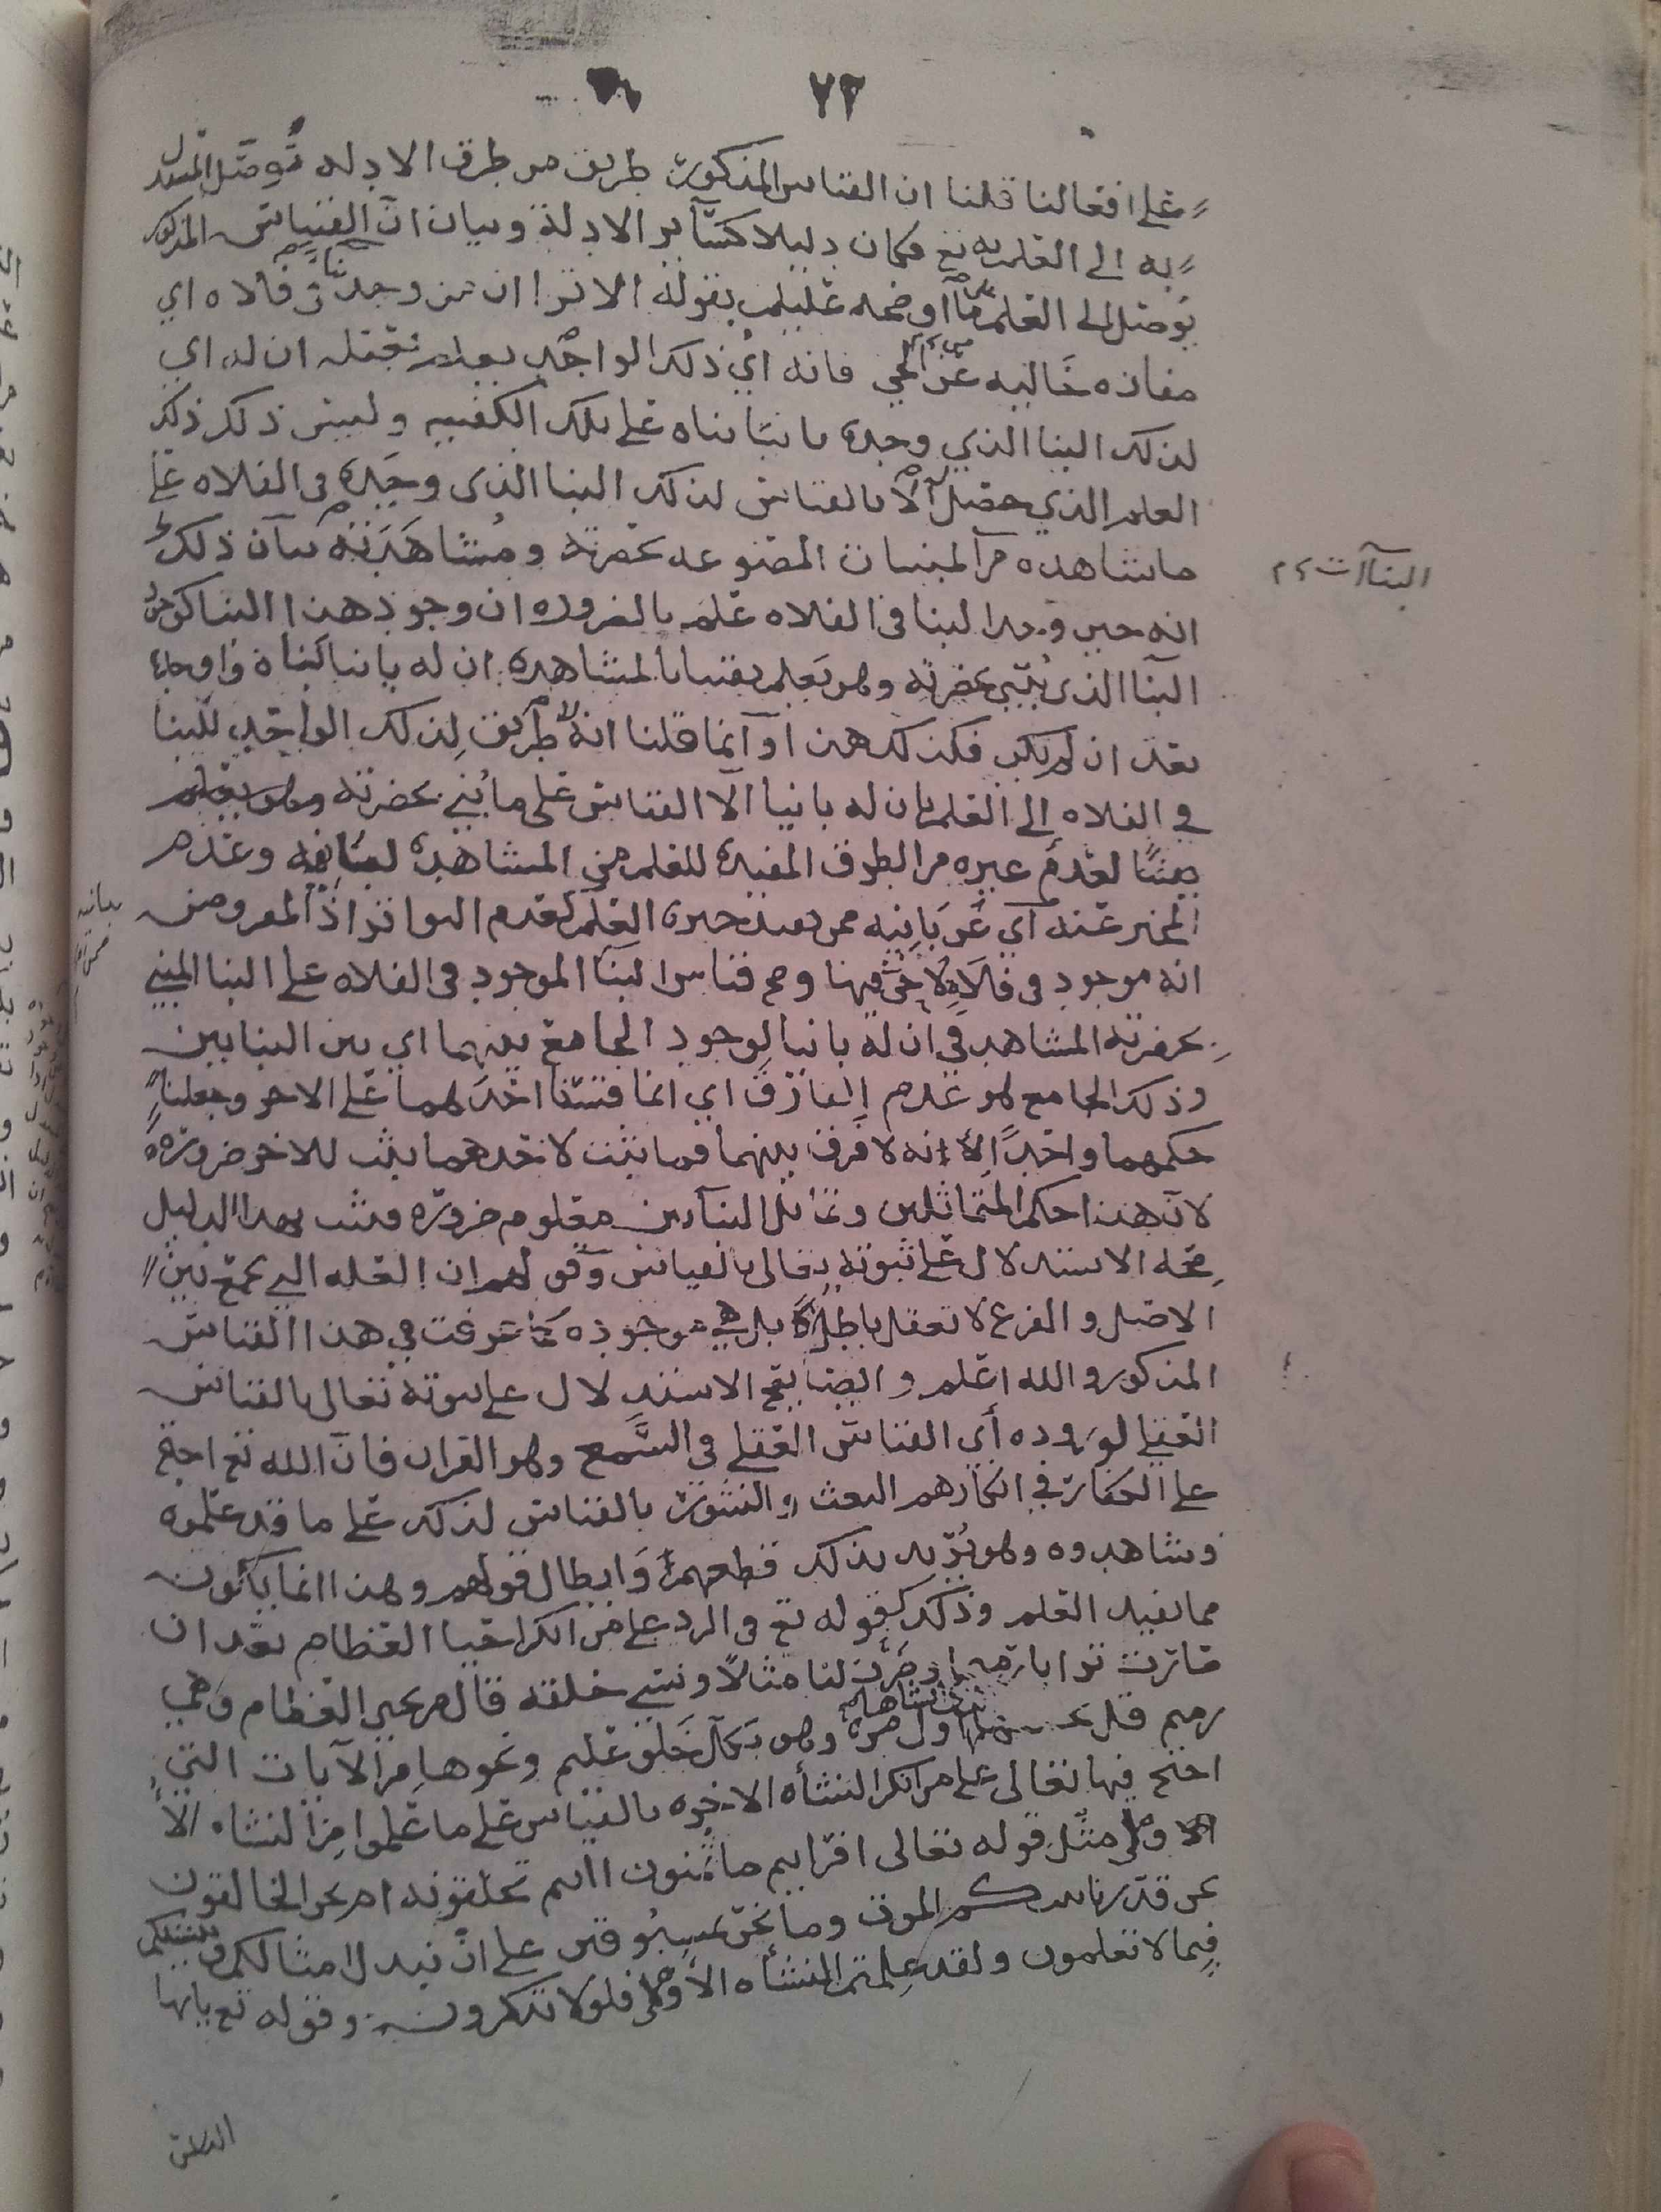 ٧٢
على افعالنا قلنا ان القياس المذكور طريق من طرق الادله توصل المستدل
به الى العلم به تع فكان دليلا كسآير الادلة وبيان انّ القياس المذكور
يوصل الى العلم ما اوضحه عليلم بقوله الا ترا ان من وجد بنا في فلاه اي
مفازه خاليه عن الحي فانه اي ذلك الواجد يعلم بعقله ان له اي
لذلك البنا الذي وجده بانيا بناه على تلك الكيفيه وليس ذلك ذلك
العلم الذي حصل الا بالقياس لذلك البنا الذي وجده في الفلاه على
ماشاهده من المبنيات المصنوعه بحضرته ومشاهدته بيان ذلك
البناآت
انه حين وجد البنا في الفلاه علم بالضروره ان وجود هذا البنا كوجود
البنا الذي بُني بحضرته وهو يعلم يقينا بالمشاهده ان له بانيا بناه واوجده
بعد ان لم يكن فكذلك هذا وآنما قلنا انه لا طريق لذلك الواجد للبنا
في الفلاه إلى العلم بان له بانيا الّا القياس على ما بُني بحضرته
لعدم غيره من الطرق المفيده للعلم من المشاهده لصانعه وعدم
المخبر عنه اي عن بانيه ممن يفيد خبره العلم كعدم التواتر اذ المفروض
انه موجود في فلاه لا حي فيها وصح قياس البنا الموجود في الفلاه على البنا المبني
بحضرته المشاهد في ان له بانيا لوجود الجامع بينهما اي بين البنايين
وذلك الجامع هو عدم الفارق اي انما قسنا احدهما على الاخر وجعلنا
حكمهما واحدًا لانه لا فرق بينهما فما يثبت لاحدهما يثبت للاخر ضروره
لانّ هذا حكم المتماثلين وتماثل البنآءين معلوم ضروره فثبت بهذا الدليل
صحه الاستدلال على ثبوته تعالى بالقياس وقولهم ان العله التي تجمع بين
الاصل والفرع لا تعقل باطل بل هي موجوده كما عرفت في هذا القياس
المذكور والله اعلم وايضا يصح الاستدلال على ثبوته تعالى بالقياس
العقلي لوروده أي القياس العقلي في السَّمع وهو القران فانّ الله تع احتج
على الكفار في انكارهم البعث والنشور بالقياس لذلك على ما قد علموه
وشاهدوه وهو يُريد بذلك قطعهم وابطال قولهم وهذا انما يكون
مما يفيد العلم وذلك كقوله تع في الرد على من انكر احيا العظام بعد ان
صارت ترابا رميما وضرب لنا مثلًا ونسي خلقه قال من يحيي العظام وهي
رميم قل يحييها الذي انشاها اول مره وهو بكل خلق عليم ونحوها من الآيات التي
احتج فيها تعالى على من انكر النشأه الاخره بالقياس على ما علموا من النشاه الأ
ولى مثل قوله تعالى افرايتم ما تمنون اانتم تخلقونه ام نحن الخالقون
نحن قدرنا بينكم الموت وما نحن بمسبوقين على ان نبدل امثالكم وننشئكم
فيما لا تعلمون ولقد علمتم النشأه الأولى فلولا تذكرون وقوله تع يايها